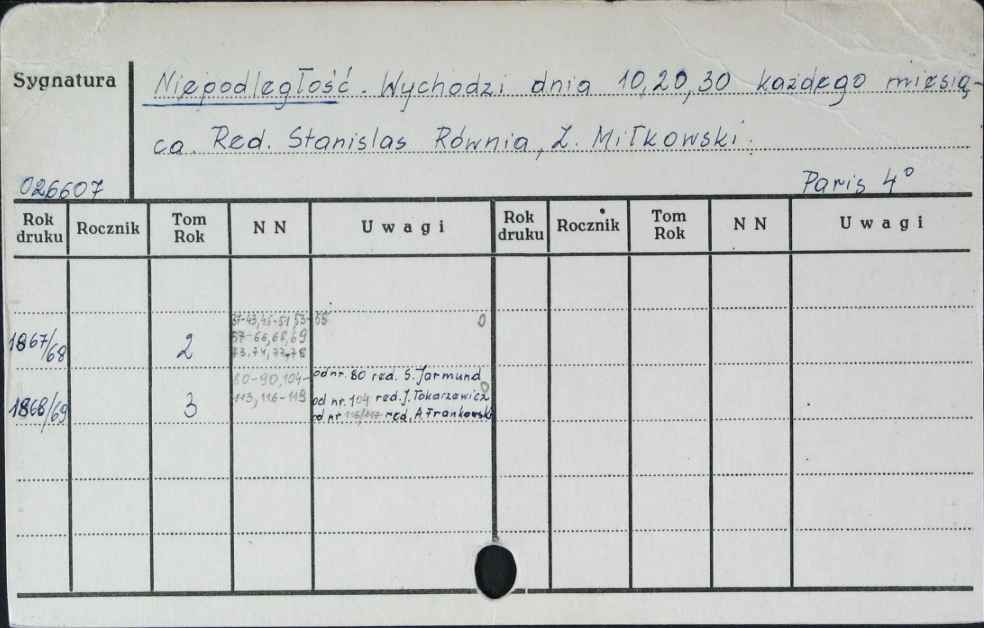 Sygnatura
Niepodległość. Wychodzi dnia 10, 20, 30 każdego miesią-
ca. Red. Stanislas Równia, Z. Miłkowski.
026607
Paris 4°
Rok druku Rocznik Tom Rok NN Uwagi Rok druku Rocznik Tom Rok NN Uwagi
1867/68 2
57-66,68,69
73.74,77,78
0
1868/69 3
80-90,104-
113,116-119
od nr. 80 red. S. Jarmund
0
od nr. 104 red. J. Tokarzewicz
od nr. 116/117 red. A. Frankowski